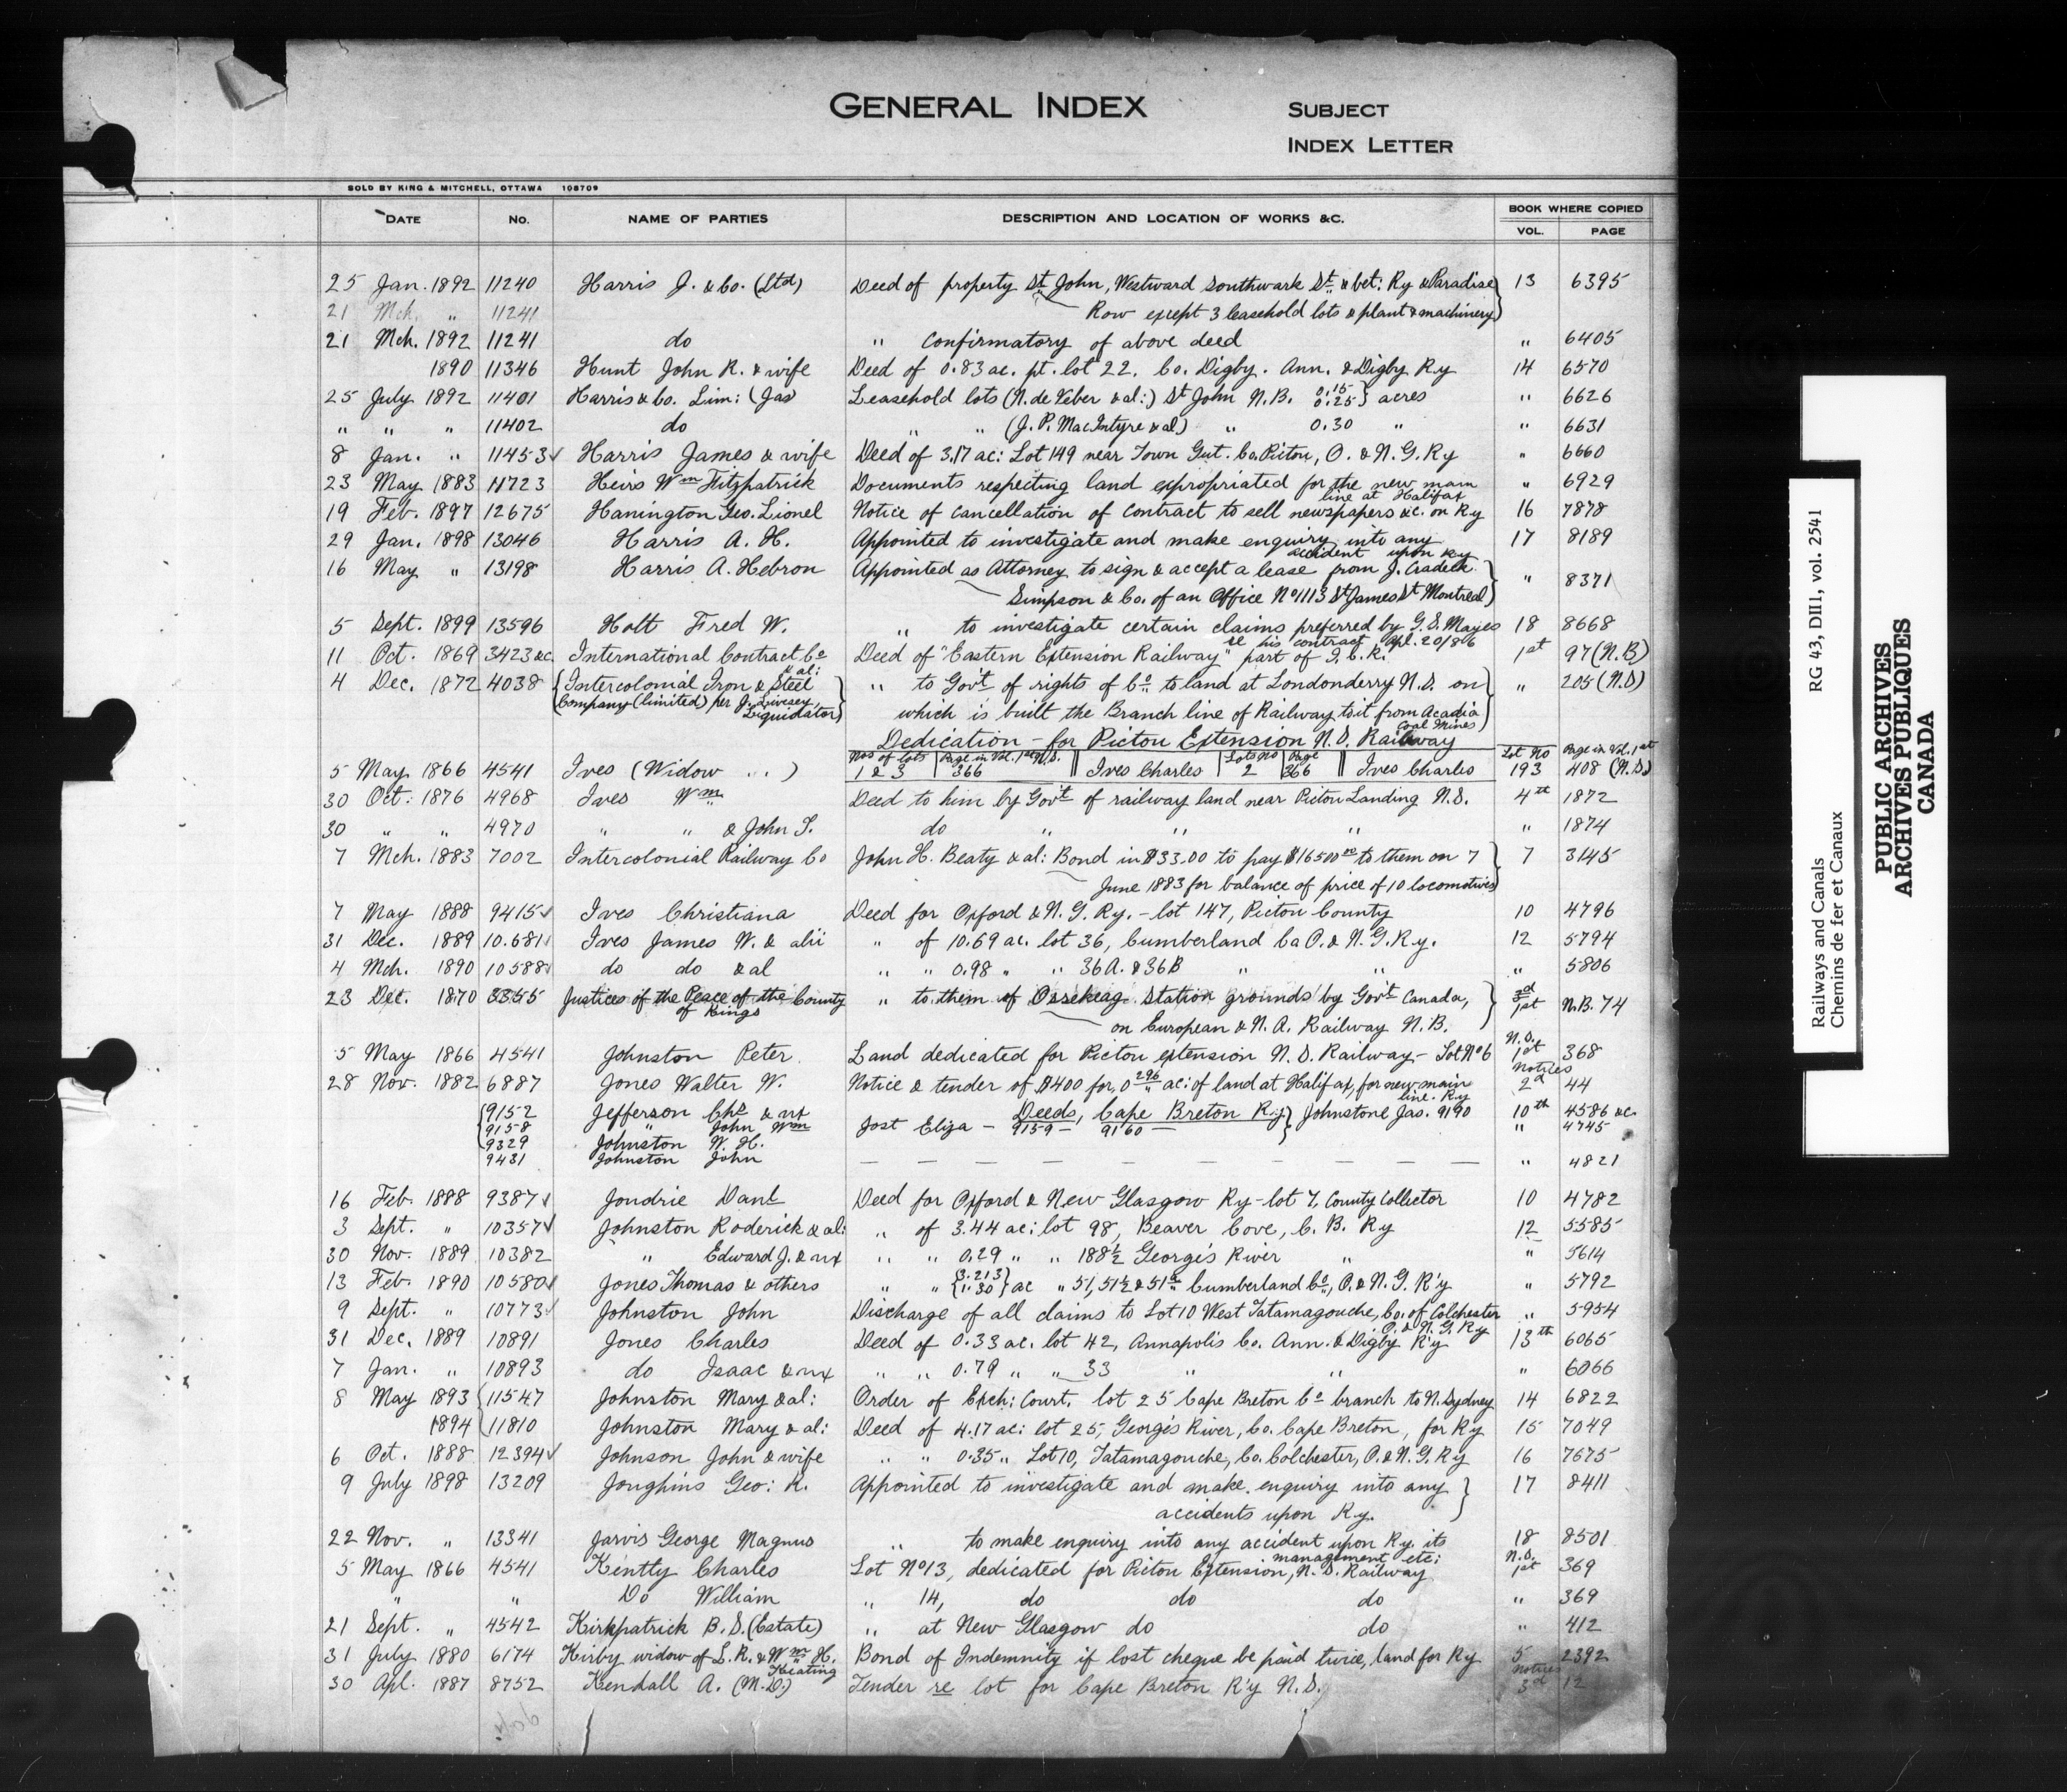 GENERAL INDEX
SUBJECT
INDEX LETTER
SOLD BY KING & MITCHELL, OTTAWA 108709
DATE No. NAME OF PARTIES DESCRIPTION AND LOCATION OF WORKS &C. BOOK WHERE COPIED
VOL. PAGE
25 Jan. 1892 11240 Harris J. & Co. (Ltd) Deed of property St. John, Westward Southwark St. & bet: Ry & Paradise 13 6395
21 Mch. " 11241 Row except 3 leasehold lots & plant & machinery
21 Mch. 1892 11241 do " Confirmatory of above deed " 6405
1890 11346 Hunt John R. & wife Deed of 0.83 ac. pt. lot 22. Co. Digby. Ann. & Digby Ry 14 6570
25 July 1892 11401 Harris & Co. Lim: (Jas) Leasehold lots (N. de Veber & al:) St John N.B. 0.15 0.25 } acres " 6626
" " " 11402 do " " (J. P. MacIntyre & al) " 0.30 " " 6631
8 Jan. " 11453✓ Harris James & wife Deed of 3.17 ac: Lot 149 near Town Gut. Co. Pictou, O. & N.G. Ry " 6660
23 May 1883 11723 Heirs Wm Fitzpatrick Documents respecting land expropriated for the new main line at Halifax " 6929
19 Feb. 1897 12675 Hanington Geo. Lionel Notice of cancellation of contract to sell newspapers &c. on Ry 16 7878
29 Jan. 1898 13046 Harris A. H. Appointed to investigate and make enquiry into any accident upon Ry 17 8189
16 May " 13198 Harris A. Hebron Appointed as Attorney to sign & accept a lease from J. Cradock
Simpson & Co. of an Office No 1113 St James St Montreal) " 8371
5 Sept. 1899 13596 Holt Fred W. " to investigate certain claims preferred by G. S. Mayes 18 8668
re his contract Apl. 20/86
11 Oct. 1869 3423 &c. International Contract Co & al: Deed of "Eastern Extension Railway" part of I. C. R. 1st 97 (N.B)
4 Dec. 1872 4038 {Intercolonial Iron & Steel " to Gov't of rights of Co. to land at Londonderry N.S. on " 205 (N.S)
Company (limited) per J. Livesey, Liquidator) which is built the Branch line of Railway to it from Acadia Coal Mines)
Dedication - for Pictou Extension N.S. Railway
Nos of lots Page in Vol. 1st N.S. Lots No Page Lot No Page in Vol. 1st
5 May 1866 4541 Ives (Widow ...) 1 & 3 366 Ives Charles 2 366 Ives Charles 193 408 (N.S)
30 Oct: 1876 4968 Ives Wm Deed to him by Gov't of railway land near Pictou Landing N.S. 4th 1872
30 " " 4970 " " & John S. do " " " " 1874
7 Mch. 1883 7002 Intercolonial Railway Co John H. Beaty & al: Bond in $33.00 to pay $16500 00 to them on 7 7 3145
June 1883 for balance of price of 10 locomotives)
7 May 1888 9415✓ Ives Christiana Deed for Oxford & N.G. Ry. - lot 147, Pictou County 10 4796
31 Dec. 1889 10.581✓ Ives James W. & alii " of 10.69 ac. lot 36, Cumberland Co O. & N.G. Ry. 12 5794
4 Mch. 1890 10588✓ do do & al " " 0.98 " " 36A. & 36B " " " 5806
23 Dec. 1870 3355 Justices of the Peace of the County of Kings " to them of Ossekeag Station grounds by Gov't Canada, 1st N.B. 74
on European & N.A. Railway N.B.
5 May 1866 4541 Johnston Peter Land dedicated for Pictou extension N.S. Railway - Lot No 6 N.S. 1st 368
28 Nov. 1882 6887 Jones Walter W. Notice & tender of $400 for 0 296 ac: of land at Halifax, for new main line. Ry Notices 2d 44
9152 Jefferson Chs & ux Deeds, Cape Breton Ry } Johnstone Jas. 9190 10th 4586 &c.
9158 " John Wm Jost Eliza - 9159 - 9160 - " 4745
9329 Johnston W. H.
9431 Johnston John — — — — — — — — " 4821
16 Feb. 1888 9387✓ Jondrie Danl Deed for Oxford & New Glasgow Ry - lot 7, County Collector 10 4782
3 Sept. " 10357✓ Johnston Roderick & al: " of 3.44 ac: lot 98, Beaver Cove, C. B. Ry 12 5585
30 Nov. 1889 10382 " Edward J. & ux " " 0.29 " " 188½ George's River " " 5614
13 Feb. 1890 10580✓ Jones Thomas & others " " {3.213 1.30} ac " 51, 51½ & 51a Cumberland Co, O. & N.G. R'y " 5792
9 Sept. " 10773✓ Johnston John Discharge of all claims to Lot 10 West Tatamagouche, Co. of Colchester O. & N. G. Ry " 5954
31 Dec. 1889 10891 Jones Charles Deed of 0.33 ac. lot 42, Annapolis Co. Ann. & Digby R'y 13th 6065
7 Jan. " 10893 do Isaac & ux " " 0.79 " " 33 " " " 6066
8 May 1893 {11547 Johnston Mary & al: Order of Exch: Court. lot 25 Cape Breton Co branch to N. Sydney 14 6822
1894 {11810 Johnston Mary & al: Deed of 4.17 ac: lot 25, George's River, Co. Cape Breton, for Ry 15 7049
6 Oct. 1888 12394✓ Johnson John & wife " " 0.35 " Lot 10, Tatamagouche, Co. Colchester, O. & N.G. Ry 16 7675
9 July 1898 13209 Joughins Geo: R. Appointed to investigate and make enquiry into any 17 8411
accidents upon Ry.
22 Nov. " 13341 Jarvis George Magnus " to make enquiry into any accident upon Ry. its management etc: 18 8501
5 May 1866 4541 Kentty Charles Lot No 13, dedicated for Pictou Extension, N.S. Railway N.S. 1st 369
" " Do William " 14, do do do " 369
21 Sept. " 4542 Kirkpatrick B. S. (Estate) " at New Glasgow do do " 412
31 July 1880 6174 Kirby widow of L. R. & Wm H. Keating Bond of Indemnity if lost cheque be paid twice, land for Ry 5 2392
30 Apl. 1887 8752 Kendall A. (M.D.) Tender re lot for Cape Breton R'y N.S. Notices 3d 12
Railways and Canals RG 43, DIII, vol. 2541
Chemins de fer et Canaux
PUBLIC ARCHIVES
ARCHIVES PUBLIQUES
CANADA